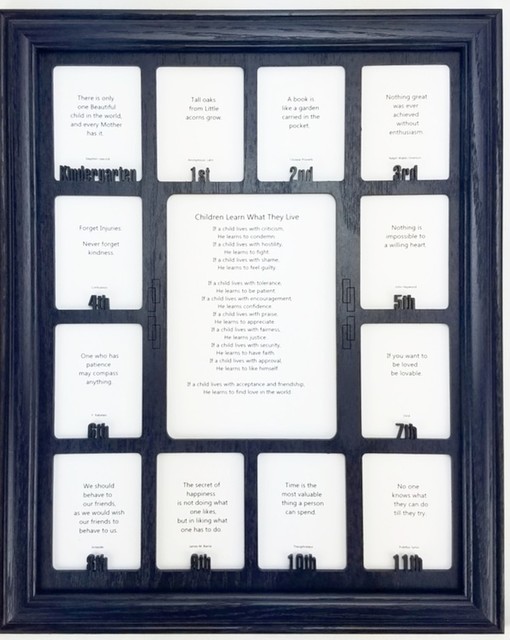 There is only
one Beautiful
child in the world,
and every Mother
has it.
Kindergarten
Tall oaks
from Little
acorns grow.
1st
A book is
like a garden
carried in the
pocket.
2nd
Nothing great
was ever
achieved
without
enthusiasm.
3rd
Forget Injuries.
Never forget
kindness.
4th
Children Learn What They Live
If a child lives with criticism,
He learns to condemn.
If a child lives with hostility,
He learns to fight.
If a child lives with shame,
He learns to feel guilty.
If a child lives with tolerance,
He learns to be patient.
If a child lives with encouragement,
He learns confidence.
If a child lives with praise,
He learns to appreciate.
If a child lives with fairness,
He learns justice.
If a child lives with security,
He learns to have faith.
If a child lives with approval,
He learns to like himself.
If a child lives with acceptance and friendship,
He learns to find love in the world.
Nothing is
impossible to
a willing heart.
5th
One who has
patience
may compass
anything.
6th
If you want to
be loved
be lovable.
7th
We should
behave to
our friends,
as we would wish
our friends to
behave to us.
8th
The secret of
happiness
is not doing what
one likes,
but in liking what
one has to do.
9th
Time is the
most valuable
thing a person
can spend.
10th
No one
knows what
they can do
till they try.
11th